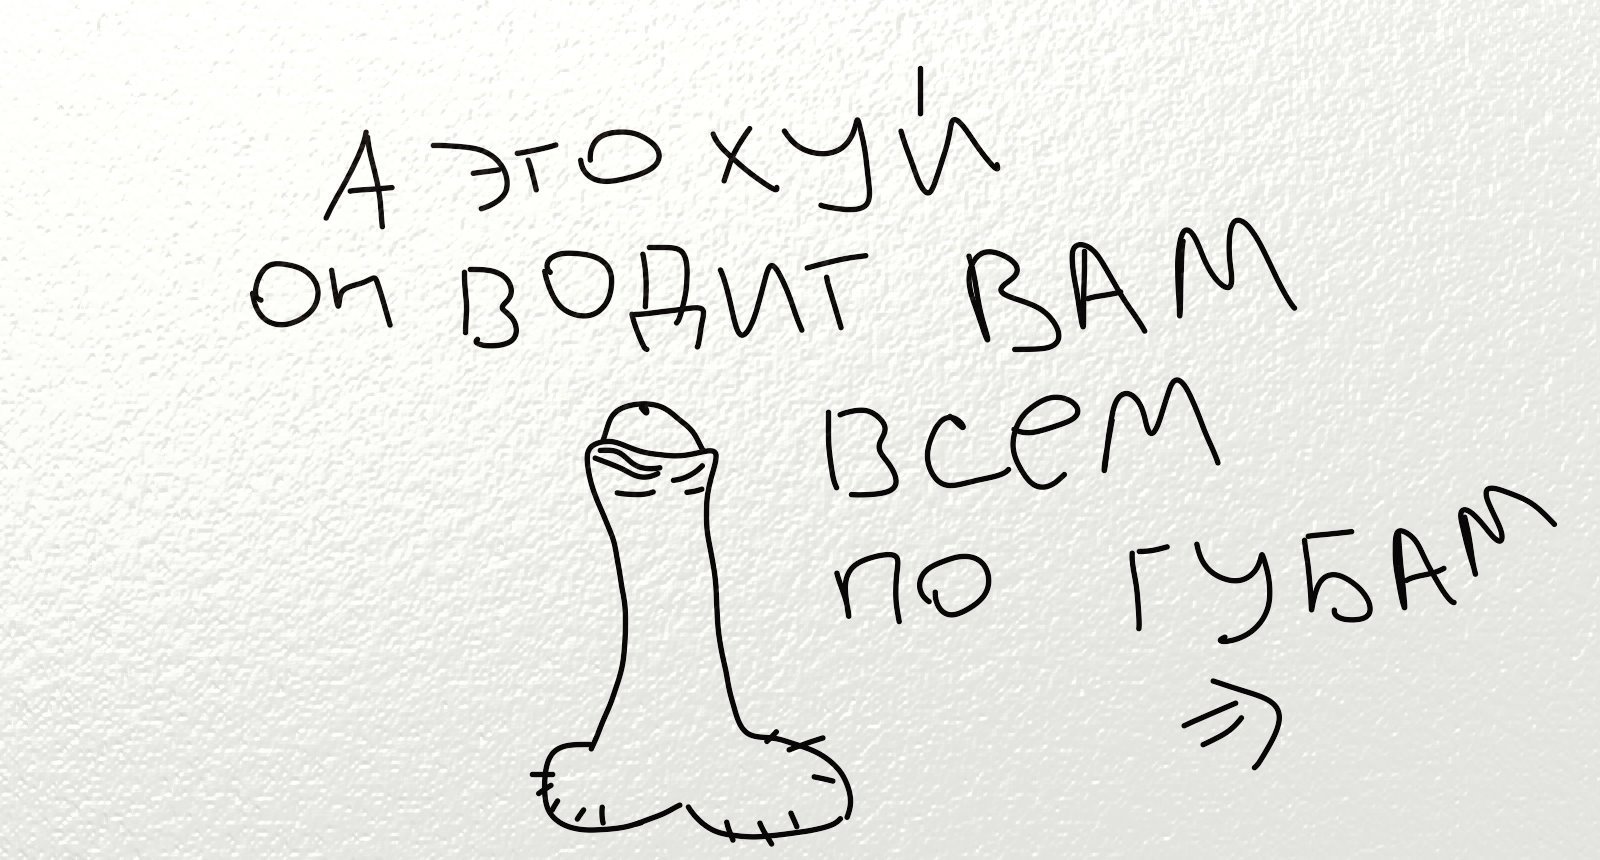 А ЭТО ХУЙ
ОН ВОДИТ ВАМ
ВСЕМ
ПО ГУБАМ
=)